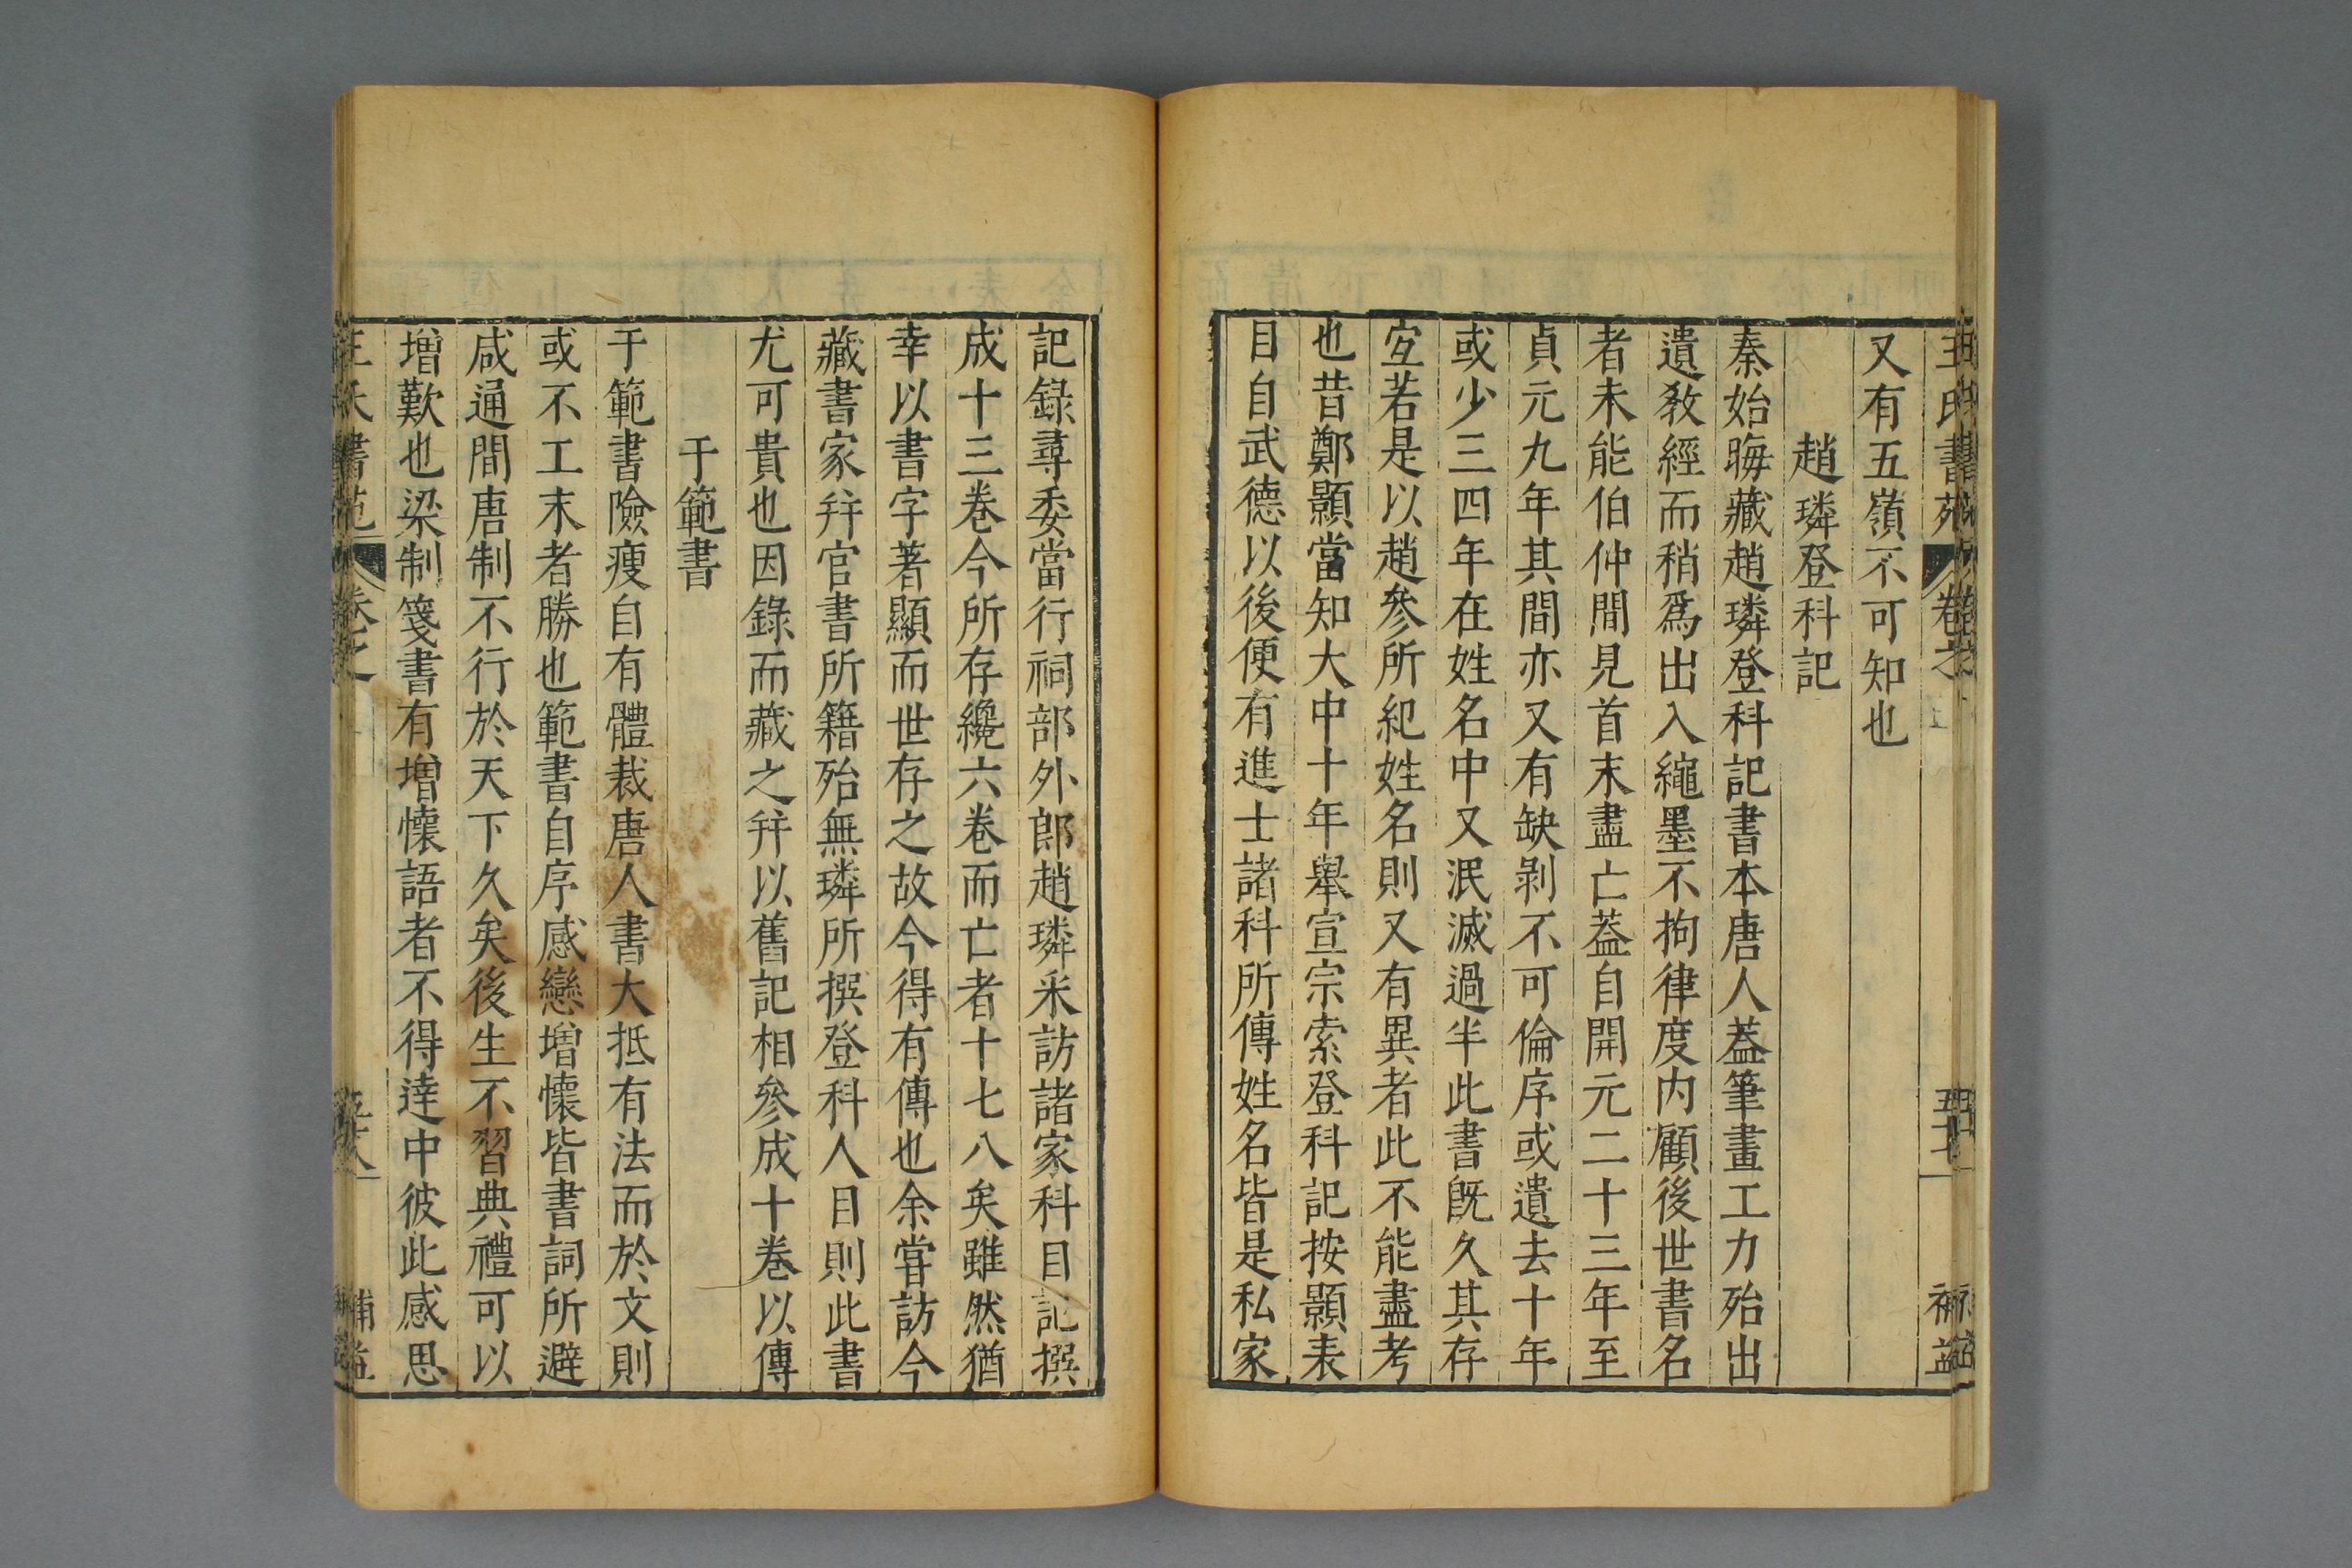 王氏書苑 卷之 五十七 補益
又有五嶺不可知也
趙璘登科記
秦始晦藏趙璘登科記書本唐人葢筆畫工力殆出
遺敎經而稍爲出入繩墨不拘律度内顧後世書名
者未能伯仲間見首末盡亡葢自開元二十三年至
貞元九年其間亦又有缺剥不可倫序或遺去十年
或少三四年在姓名中又泯滅過半此書旣久其存
宐若是以趙參所紀姓名則又有異者此不能盡考
也昔鄭顥當知大中十年舉宣宗索登科記按顥表
目自武德以後便有進士諸科所傳姓名皆是私家
記録尋委當行祠部外郎趙璘采訪諸家科目記撰
成十三卷今所存纔六卷而亡者十七八矣雖然猶
幸以書字著顯而世存之故今得有傳也余甞訪今
藏書家幷官書所籍殆無璘所撰登科人目則此書
尤可貴也因錄而藏之幷以舊記相參成十卷以傳
于範書
于範書險瘦自有體裁唐人書大抵有法而於文則
或不工末者勝也範書自序感戀增懷皆書詞所避
咸通間唐制不行於天下久矣後生不習典禮可以
增歎也梁制箋書有增懷語者不得達中彼此感思
王氏書苑 卷之 補益